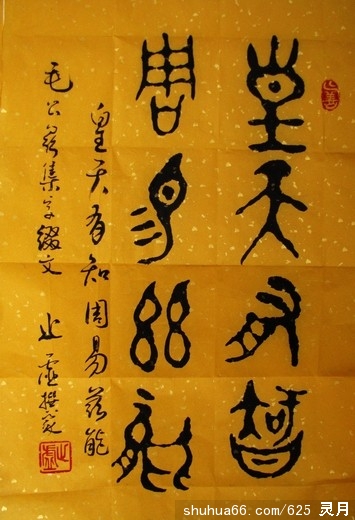 皇天有智
周易兹能
皇天有知周易兹能
毛公鼎集字缀文 止虚撰
止虚
shuhua66.com/625 灵月